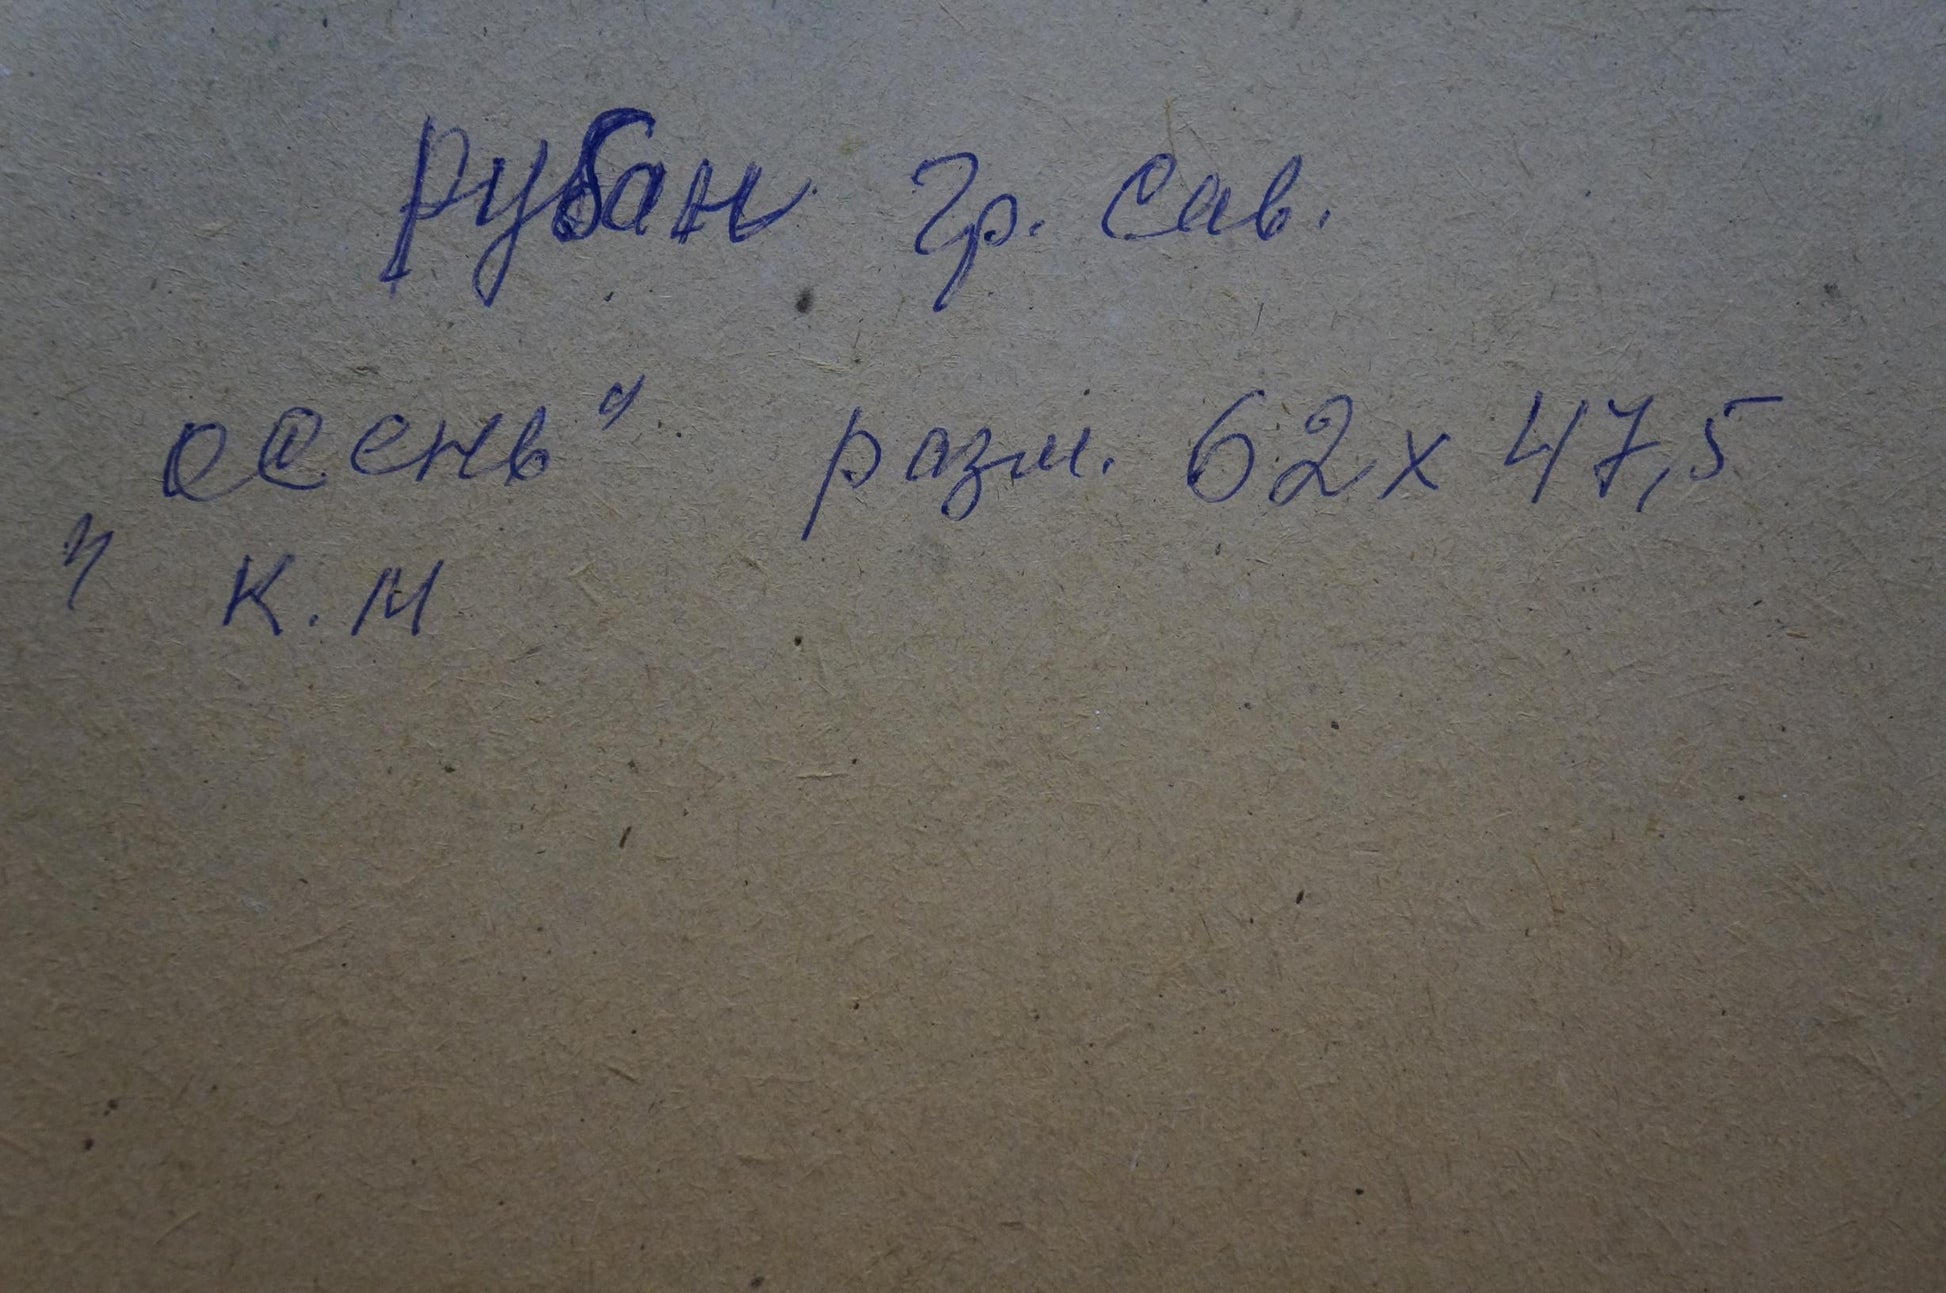 Рубан Гр. Сав.
„осень“ разм. 62 х 47,5
к.м